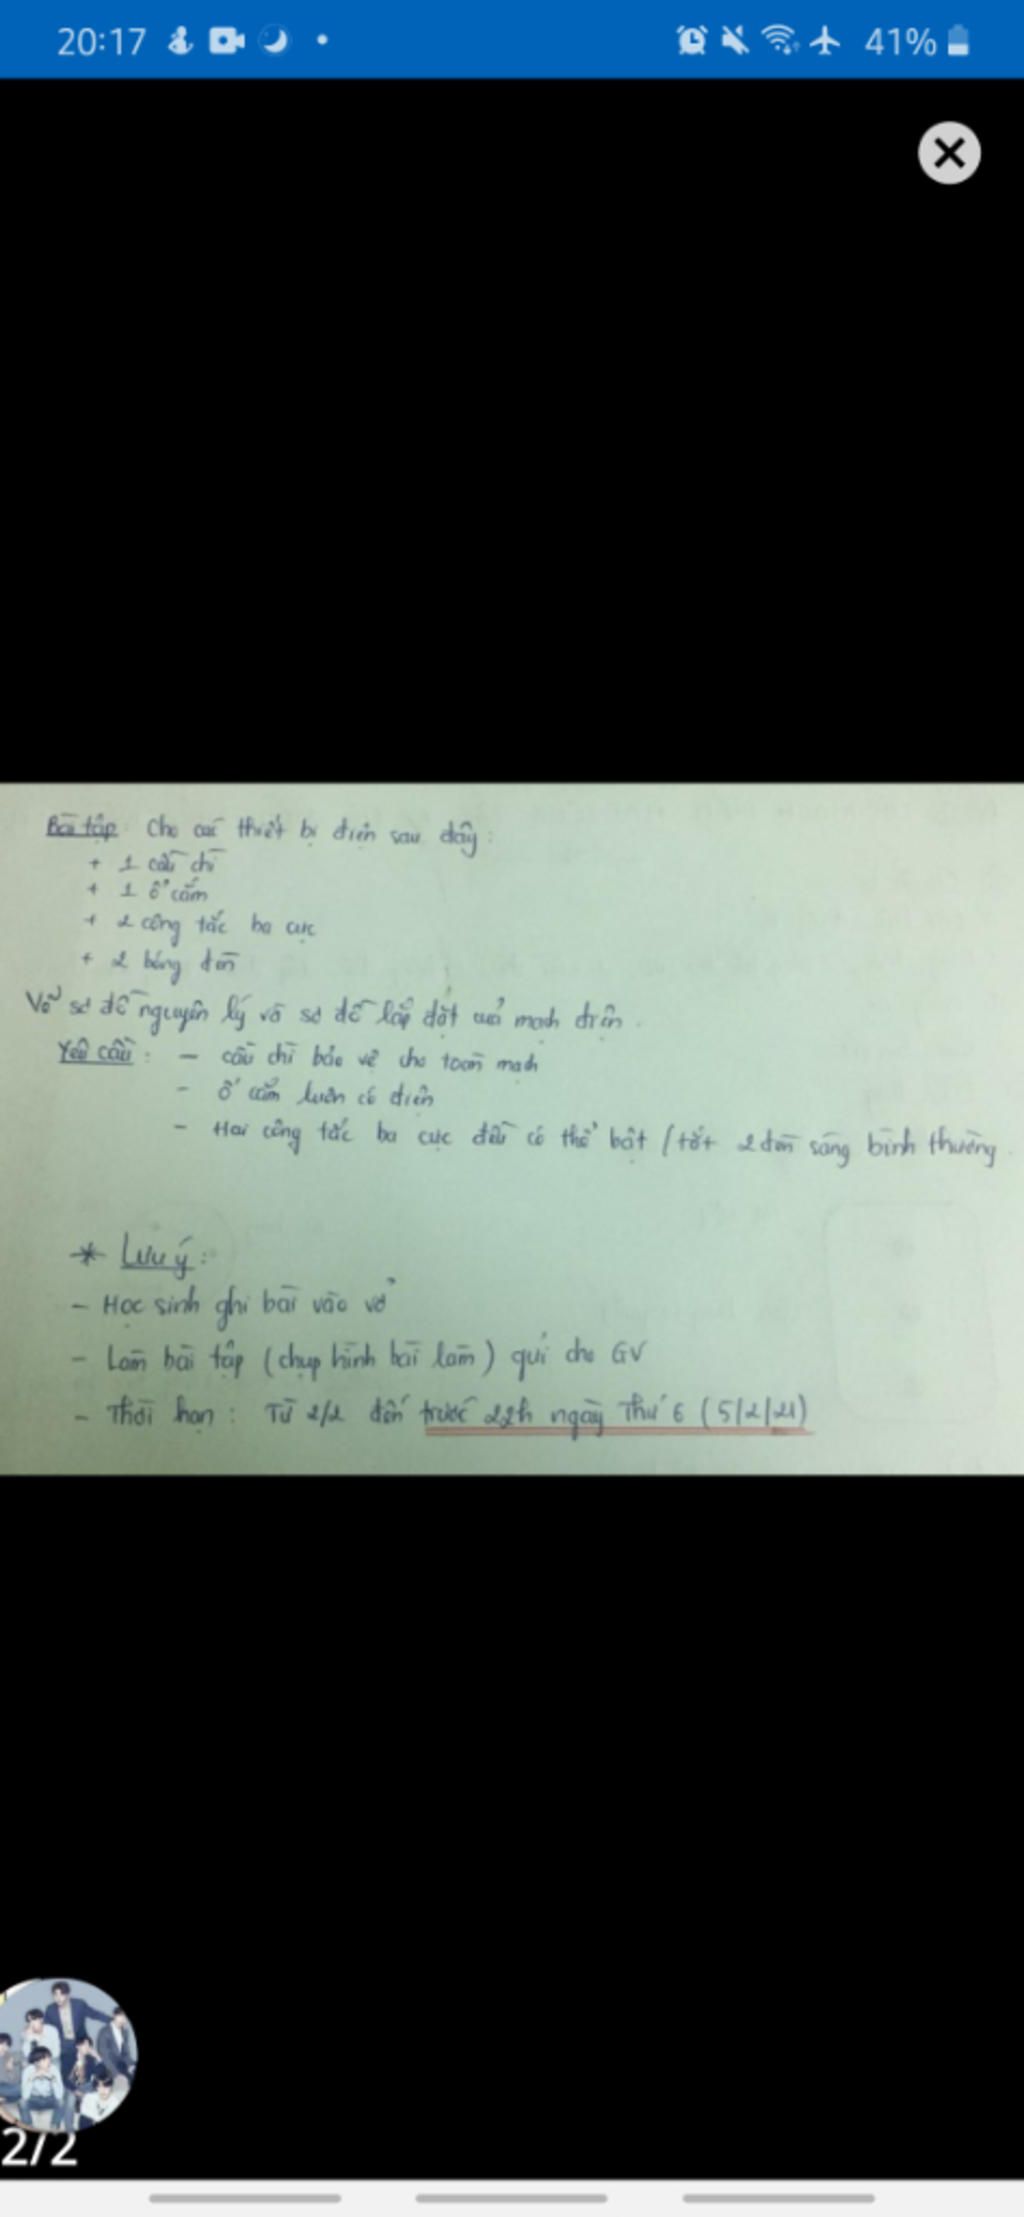 20:17
41%
Bài tập: Cho các thiết bị điện sau đây:
+ 1 cầu chì
+ 1 ổ cắm
+ 2 công tắc ba cực
+ 2 bóng đèn
Vẽ sơ đồ nguyên lý và sơ đồ lắp đặt của mạch điện.
Yêu cầu: - cầu chì bảo vệ cho toàn mạch
- ổ cắm luôn có điện
- Hai công tắc ba cực đều có thể bật / tắt 2 đèn sáng bình thường.
* Lưu ý:
- Học sinh ghi bài vào vở
- Làm bài tập (chụp hình bài làm) gửi cho GV
- Thời hạn: Từ 2/2 đến trước 22h ngày Thứ 6 (5/2/21)
2/2